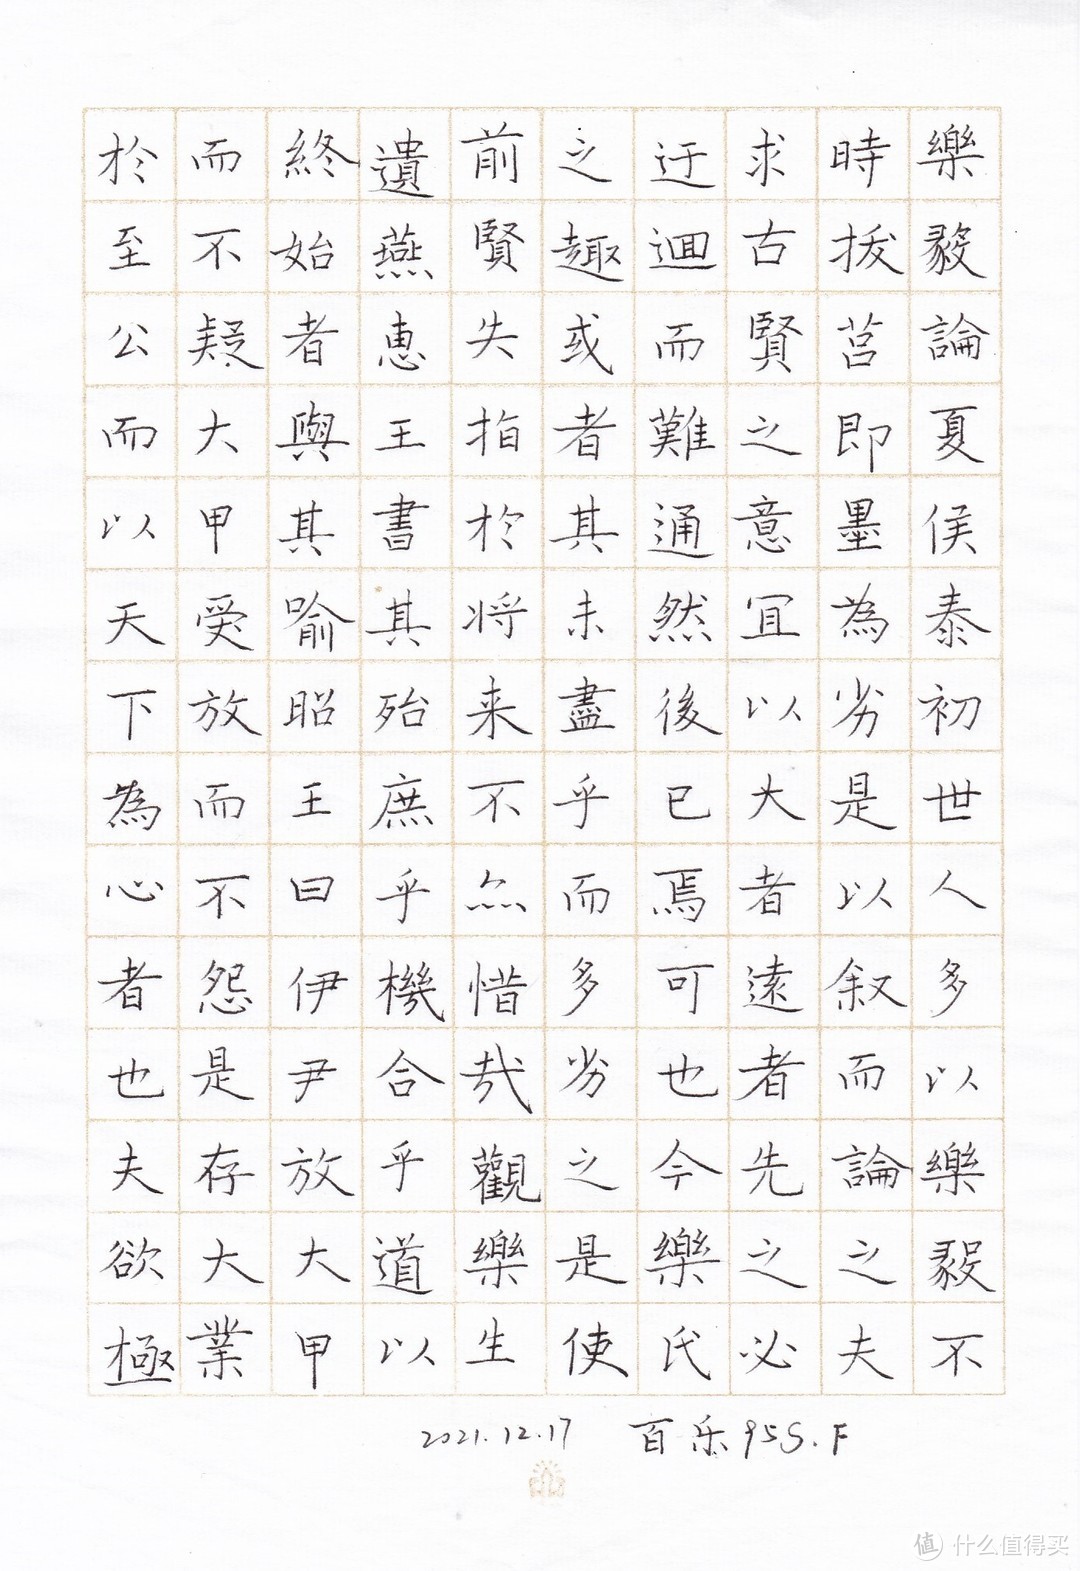 樂毅論夏侯泰初世人多以樂毅不
時拔莒即墨為劣是以叙而論之夫
求古賢之意宜以大者遠者先之必
迂迴而難通然後已焉可也今樂氏
之趣或者其未盡乎而多劣之是使
前賢失指於将来不亦惜哉觀樂生
遺燕惠王書其殆庶乎機合乎道以
終始者與其喻昭王曰伊尹放大甲
而不疑大甲受放而不怨是存大業
於至公而以天下為心者也夫欲極
2021.12.17 百乐95S.F
值 什么值得买